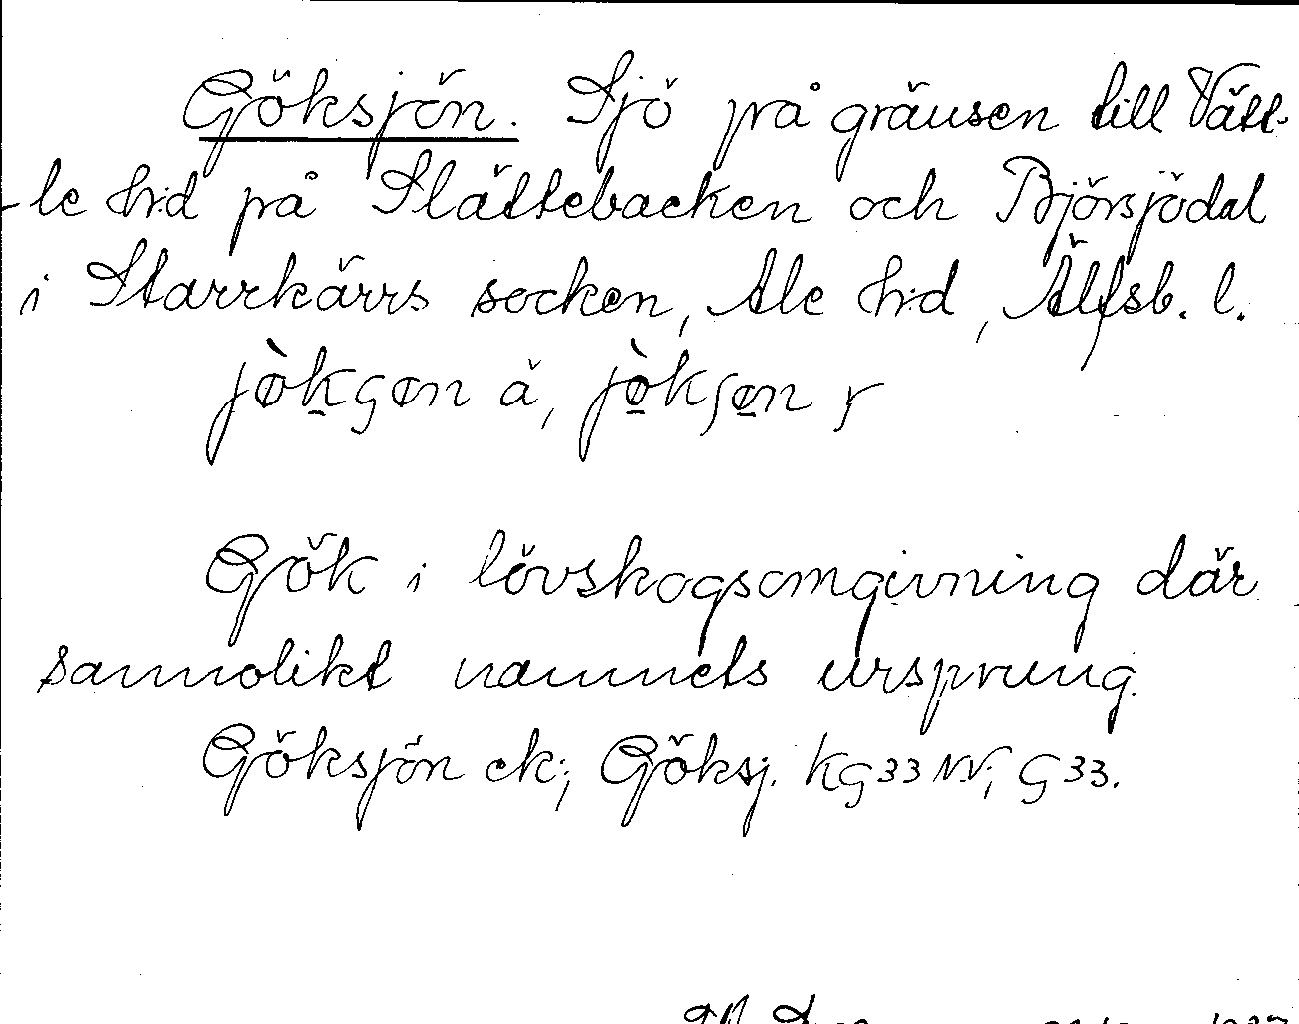 Göksjön. Sjö på gränsen till Vätt-
le h:d på Slättebacken och Björsjödal
i Starrkärrs socken, Ale h:d, Älfsb. l.
jòkʂøn ä, jòkʂøn r
Gök i lövskogsomgivning där
sannolikt namnets ursprung.
Göksjön ek; Göksj. KG33 NV; G33.